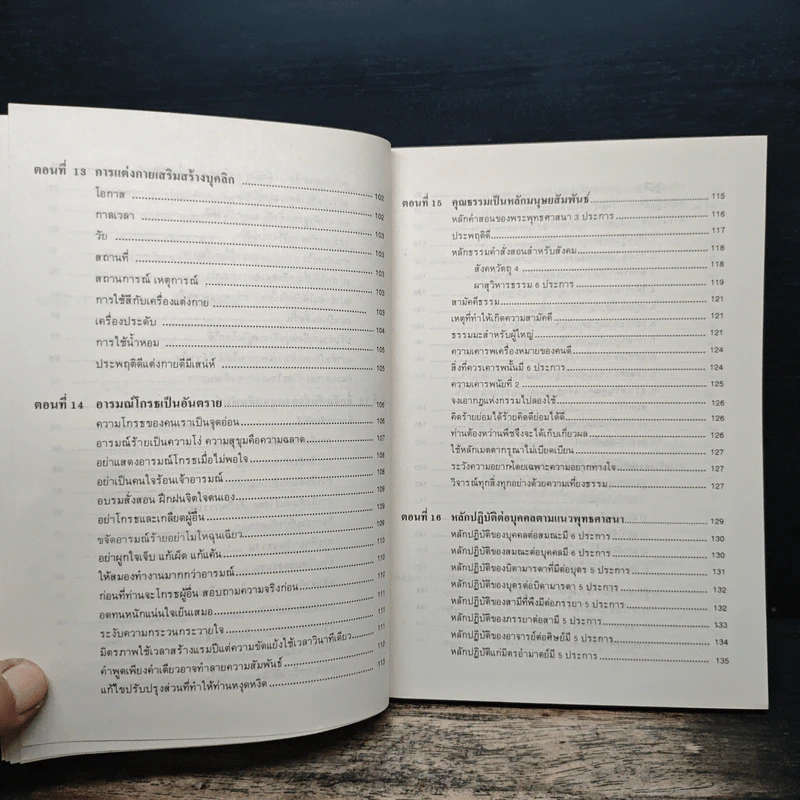 ตอนที่ 13 การแต่งกายเสริมสร้างบุคลิก 102
โอกาส 102
กาลเวลา 103
วัย 103
สถานที่ 103
สถานการณ์ เหตุการณ์ 103
การใช้สีกับเครื่องแต่งกาย 103
เครื่องประดับ 104
การใช้น้ำหอม 105
ประพฤติดีแต่งกายดีมีเสน่ห์ 105
ตอนที่ 14 อารมณ์โกรธเป็นอันตราย 106
ความโกรธของคนเราเป็นจุดอ่อน 106
อารมณ์ร้ายเป็นความโง่ ความสุขุมคือความฉลาด 107
อย่าแสดงอารมณ์โกรธเมื่อไม่พอใจ 108
อย่าเป็นคนใจร้อนเจ้าอารมณ์ 108
อบรมสั่งสอน ฝึกฝนจิตใจตนเอง 109
อย่าโกรธและเกลียดผู้อื่น 109
ขจัดอารมณ์ร้ายอย่าโมโหฉุนเฉียว 109
อย่าผูกใจเจ็บ แก้เผ็ด แก้แค้น 110
ให้สมองทำงานมากกว่าอารมณ์ 110
ก่อนที่ท่านจะโกรธผู้อื่น สอบถามความจริงก่อน 110
อดทนหนักแน่นใจเย็นเสมอ
ระงับความกระวนกระวายใจ
มิตรภาพใช้เวลาสร้างแรมปีแต่ความขัดแย้งใช้เวลาวินาทีเดียว
คำพูดเพียงคำเดียวอาจทำลายความสัมพันธ์
แก้ไขปรับปรุงส่วนที่ทำให้ท่านหงุดหงิด
ตอนที่ 15 คุณธรรมเป็นหลักมนุษยสัมพันธ์ 115
หลักคำสอนของพระพุทธศาสนา 3 ประการ 116
ประพฤติดี 117
หลักธรรมคำสั่งสอนสำหรับสังคม 118
สังคหวัตถุ 4 118
ผาสุวิหารธรรม 6 ประการ 119
สามัคคีธรรม 121
เหตุที่ทำให้เกิดความสามัคคี 121
ธรรมมะสำหรับผู้ใหญ่ 121
ความเคารพเครื่องหมายของคนดี 124
สิ่งที่ควรเคารพนั้นมี 6 ประการ 124
ความเคารพนัยที่ 2 125
จงเอากฎแห่งกรรมไปลองใช้ 126
คิดร้ายย่อมได้ร้ายคิดดีย่อมได้ดี 126
ท่านต้องหว่านพืชจึงจะได้เก็บเกี่ยวผล 126
ใช้หลักเมตตากรุณาไม่เบียดเบียน 127
ระวังความอยากโดยเฉพาะความอยากทางใจ 127
วิจารณ์ทุกสิ่งทุกอย่างด้วยความเที่ยงธรรม 127
ตอนที่ 16 หลักปฏิบัติต่อบุคคลตามแนวพุทธศาสนา 129
หลักปฏิบัติของบุคคลต่อสมณะมี 6 ประการ 130
หลักปฏิบัติของสมณะต่อบุคคลมี 6 ประการ 130
หลักปฏิบัติของบิดามารดาที่มีต่อบุตร 5 ประการ 131
หลักปฏิบัติของบุตรต่อบิดามารดา 5 ประการ 132
หลักปฏิบัติของสามีที่พึงมีต่อภรรยา 5 ประการ 132
หลักปฏิบัติของภรรยาต่อสามี 5 ประการ 133
หลักปฏิบัติของอาจารย์ต่อศิษย์มี 5 ประการ 134
หลักปฏิบัติแก่มิตรอำมาตย์มี 5 ประการ 135